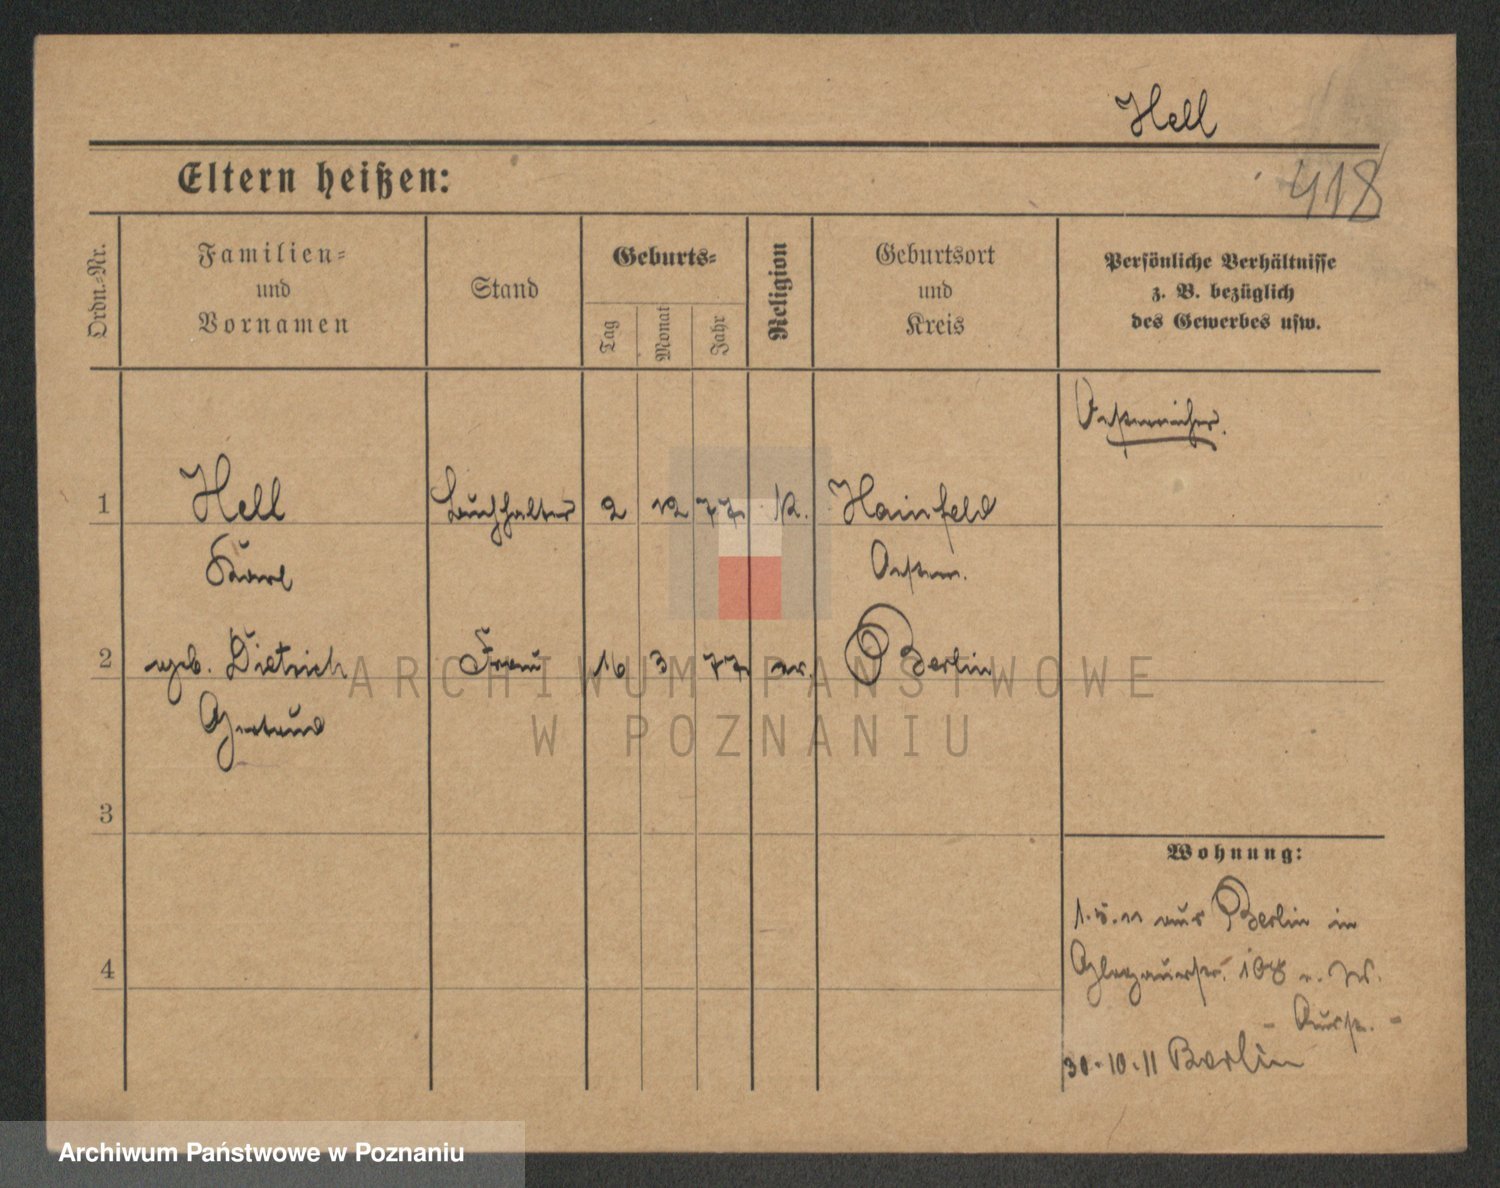 Hell
418
Eltern heißen:
Ordn.-Nr.
Familien-
und
Vornamen
Stand
Geburts-
Tag
Monat
Jahr
Religion
Geburtsort
und
Kreis
Persönliche Verhältnisse
z. B. bezüglich
des Gewerbes usw.
Oesterreicher.
1 Hell Buchhalter 2 12 77 K. Hainfeld
Karl Oesterr.
2 geb. Dietrich Frau 16 3 77 ev. Berlin
Gertrud
3
4
Wohnung:
1.5.11 aus Berlin in
108
30-10.11 Berlin
ARCHIWUM PAŃSTWOWE
W POZNANIU
Archiwum Państwowe w Poznaniu